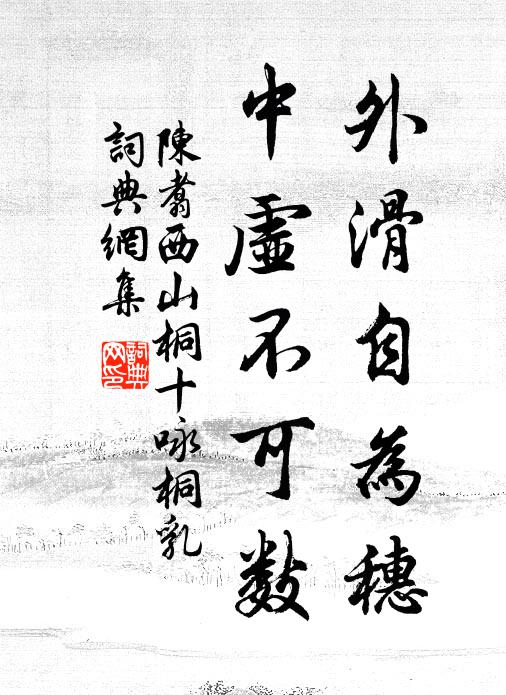 外滑自為穗
中虛不可數
陳翥西山桐十咏桐乳
詞典網集
詞典
网印